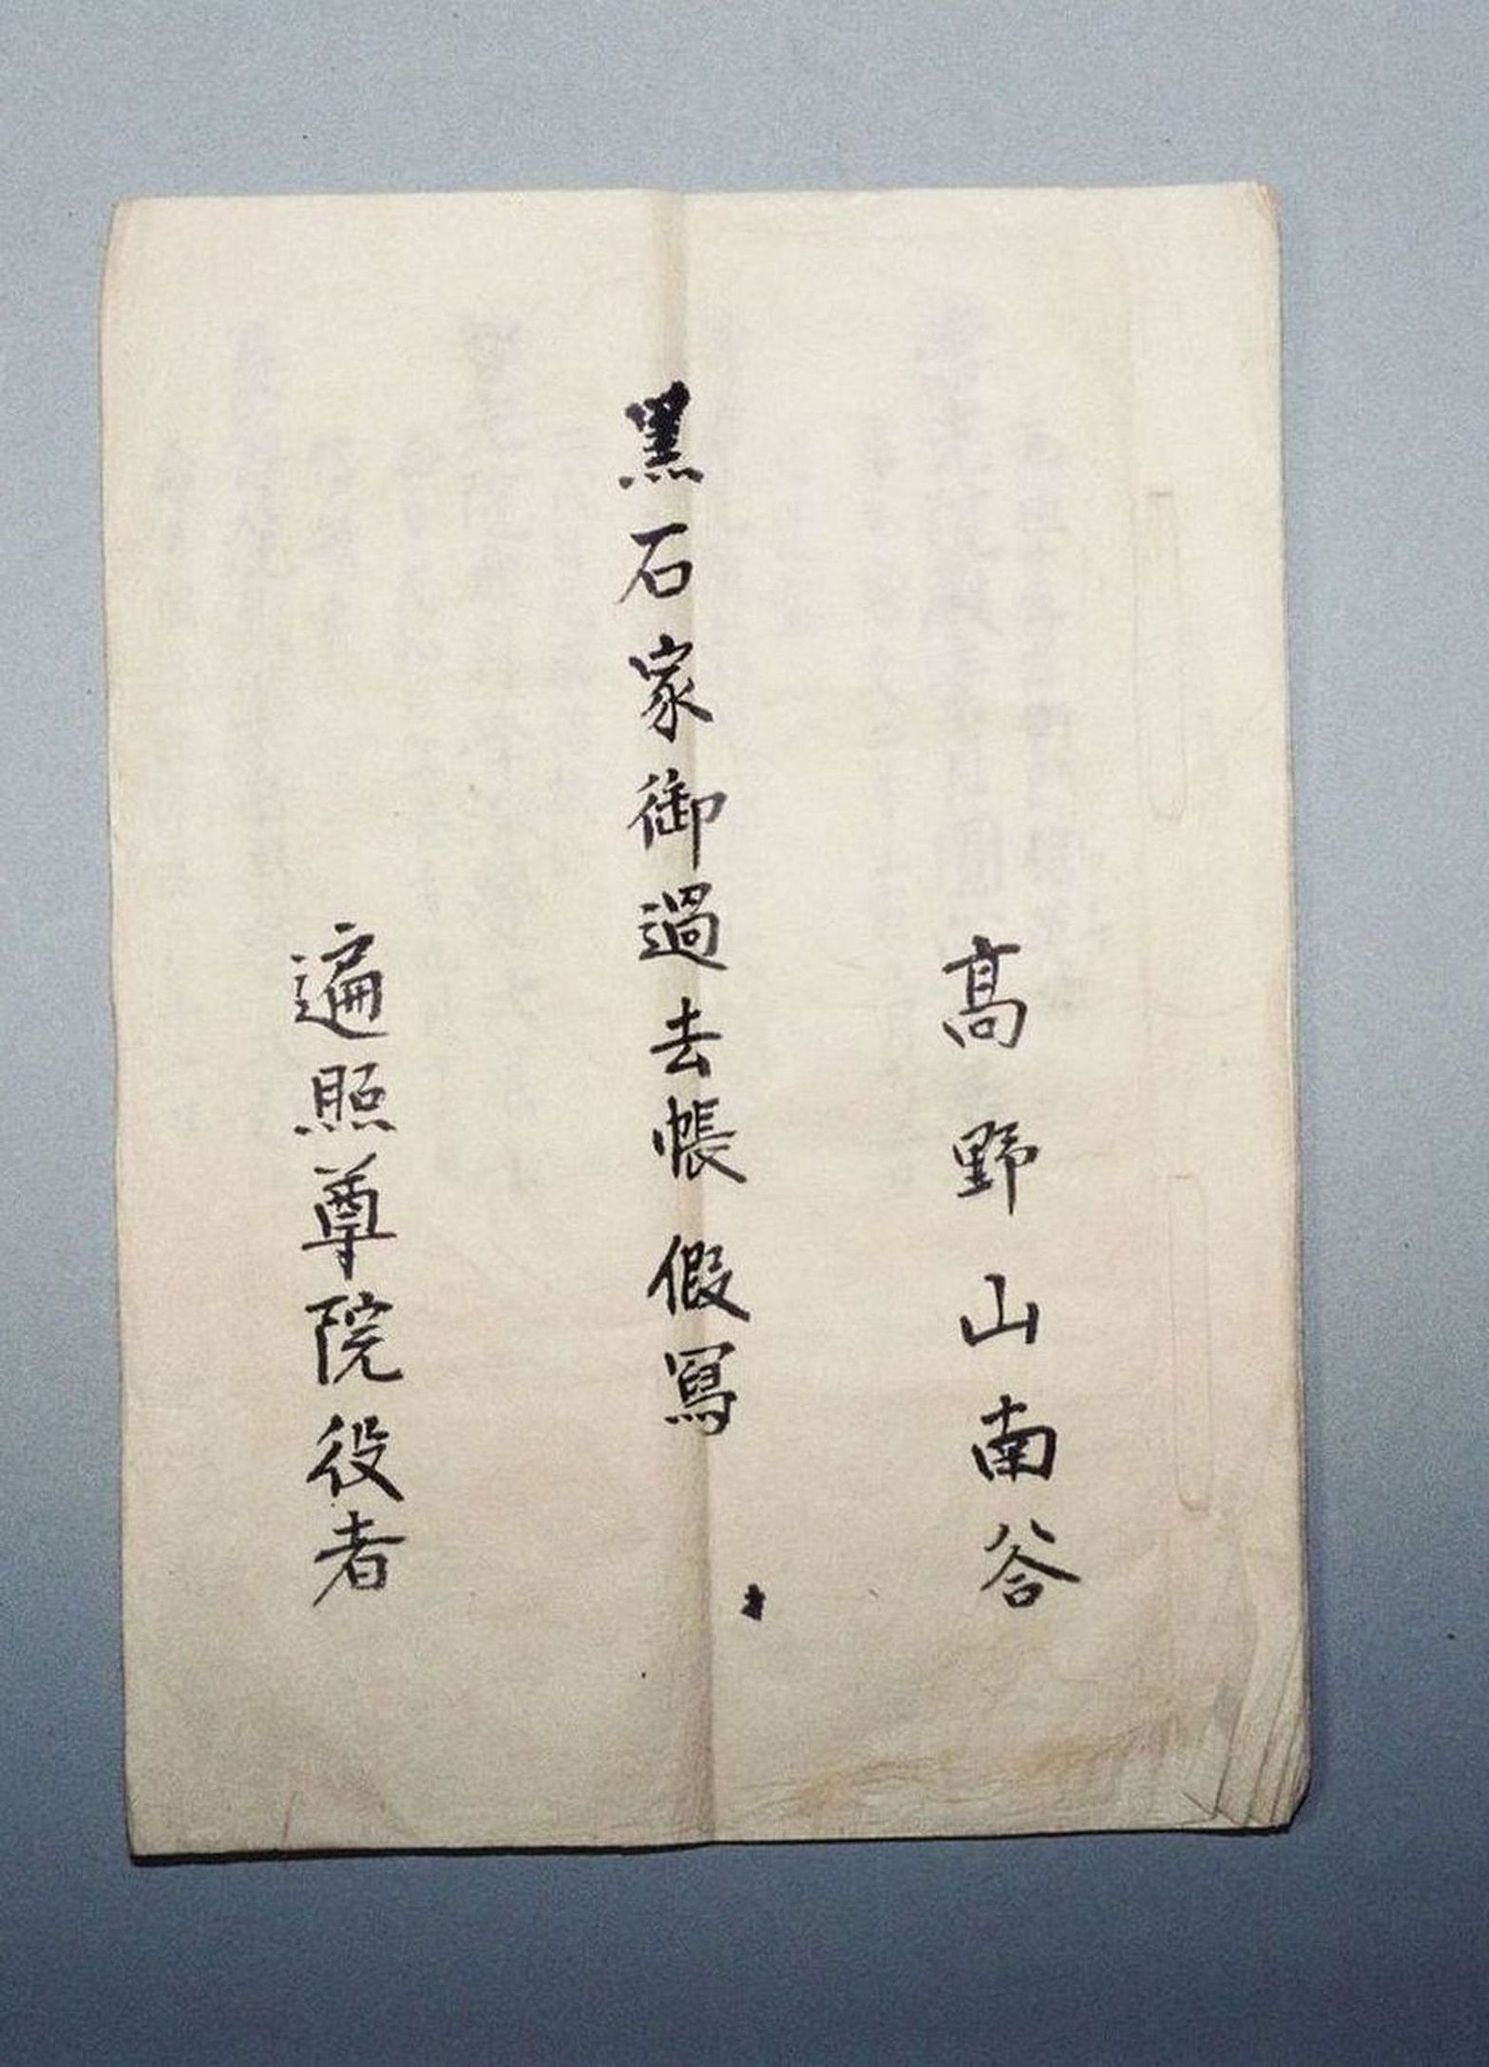 髙野山南谷
黒石家御過去帳假寫
遍照尊院役者